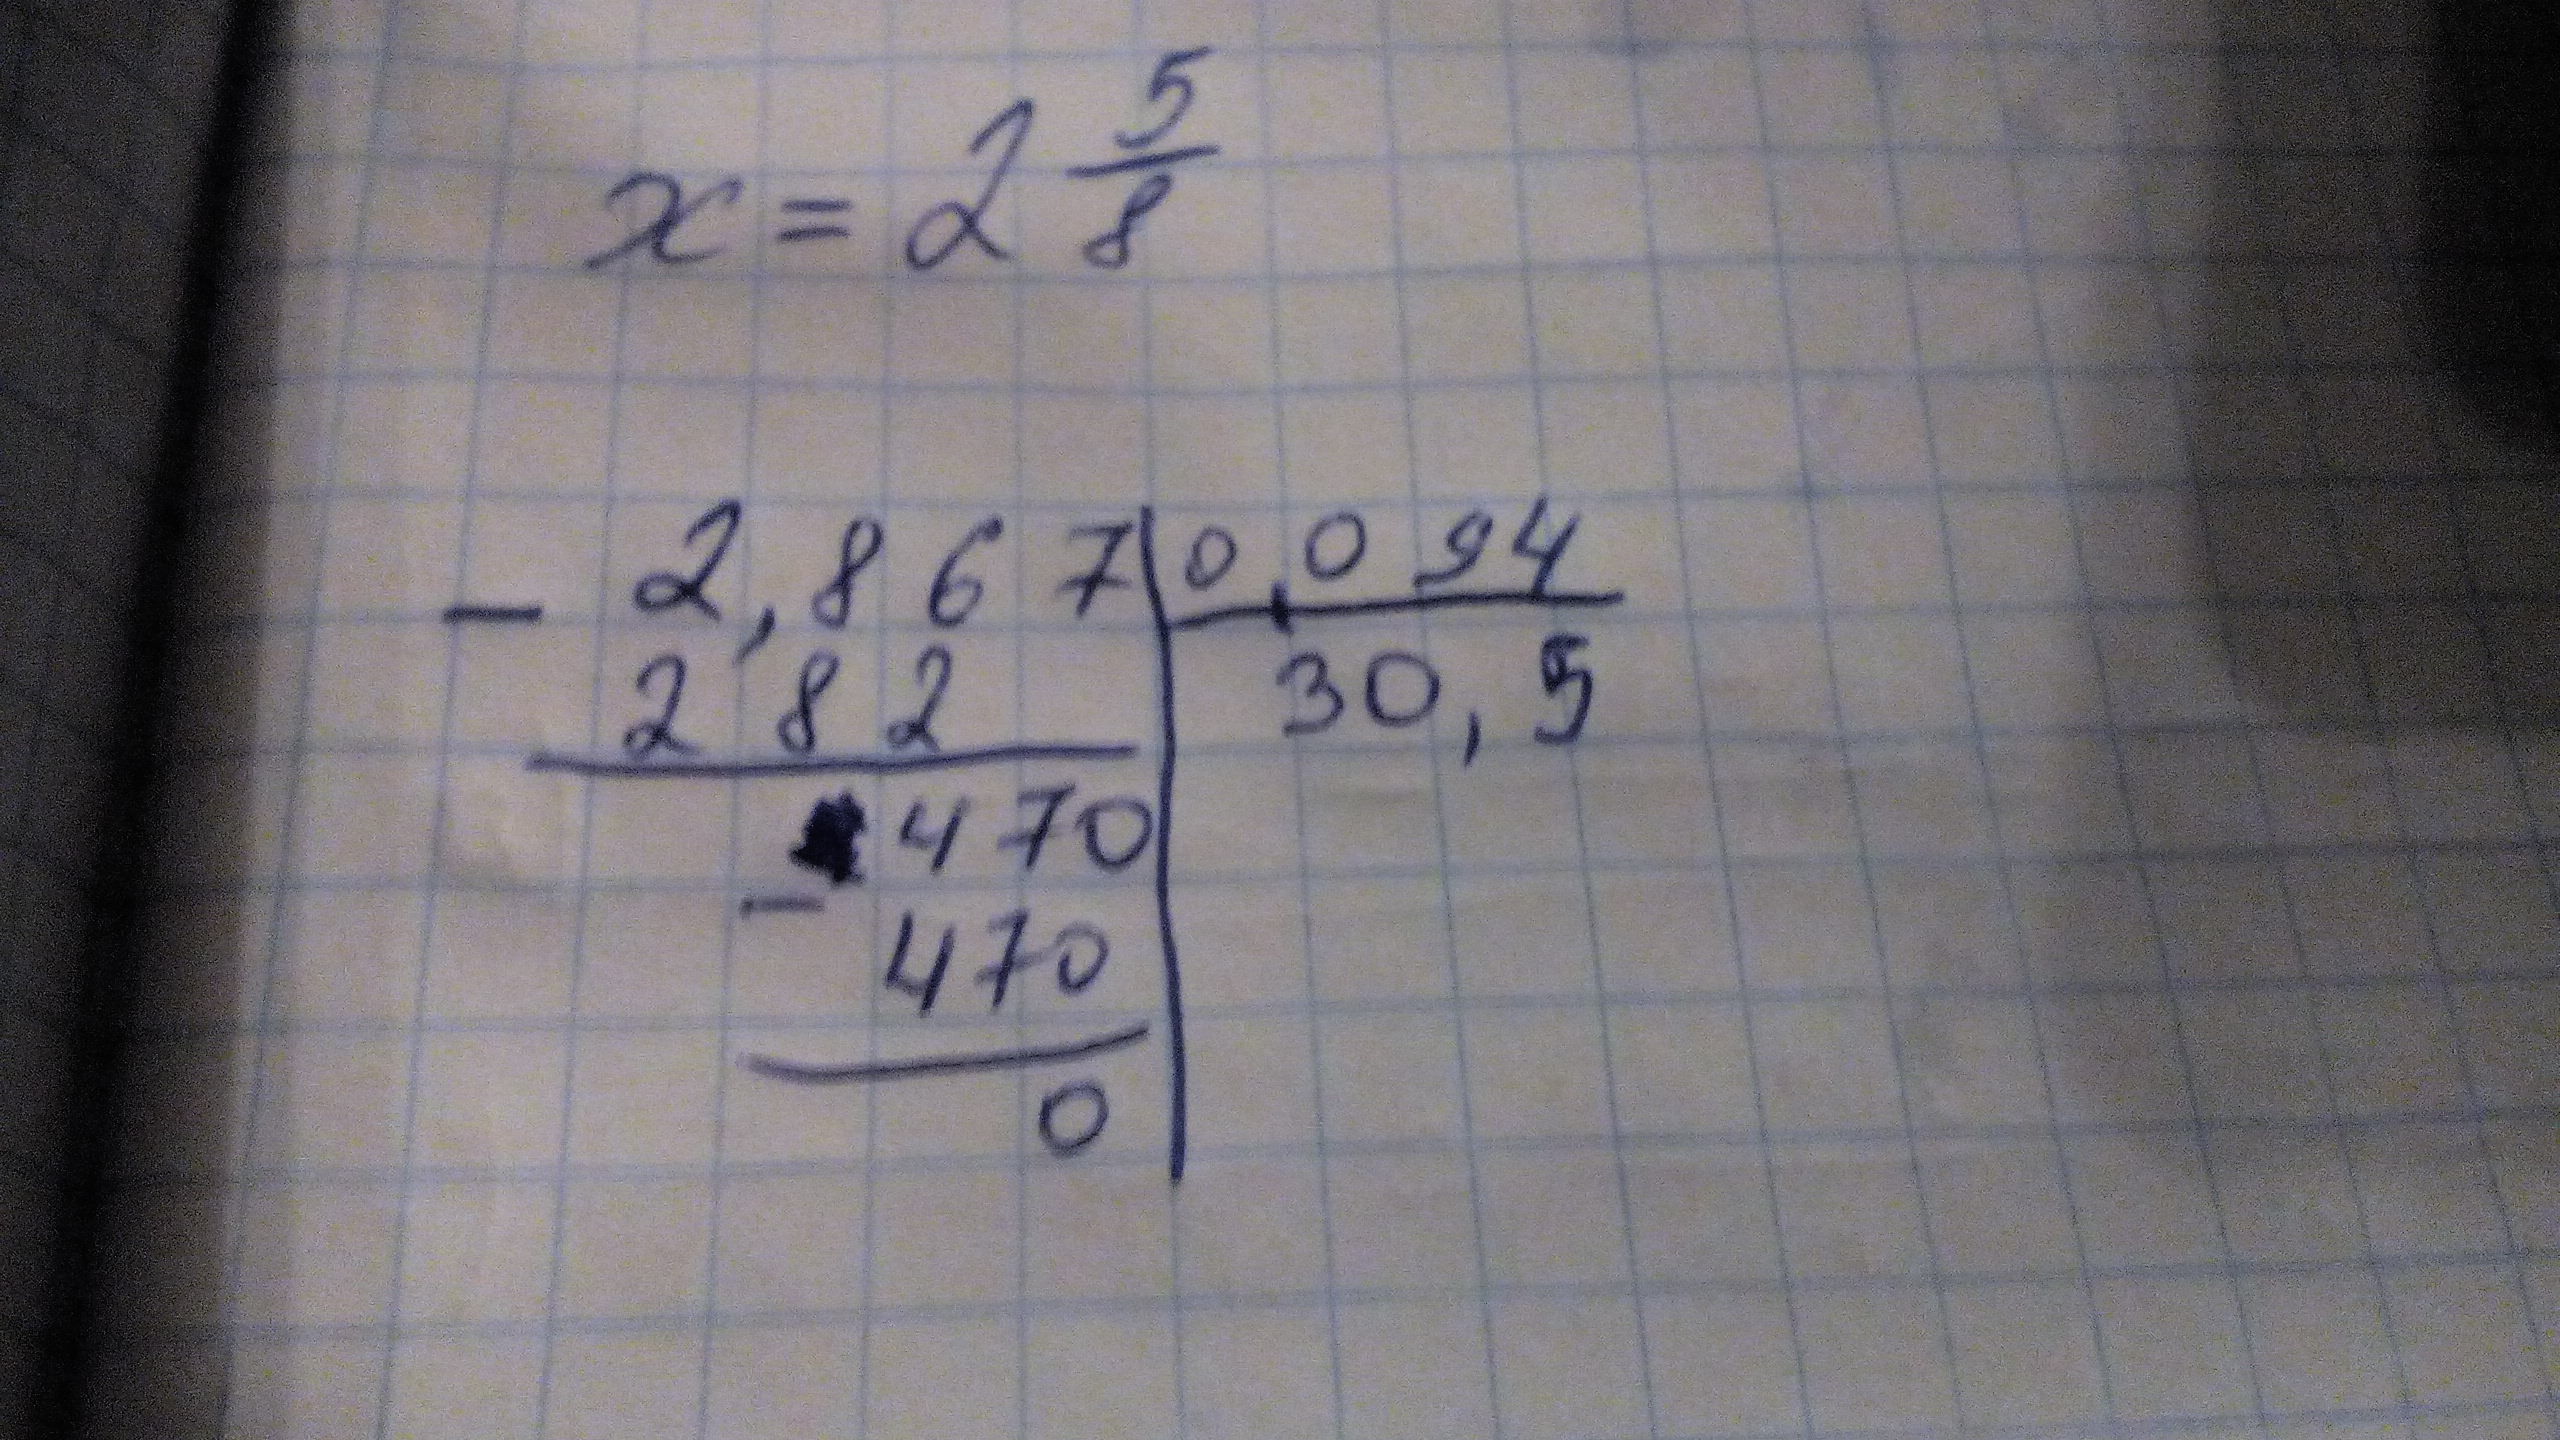 x = 2 5/8
- 2,867 | 0,094
282 | 30,5
- 470
470
0